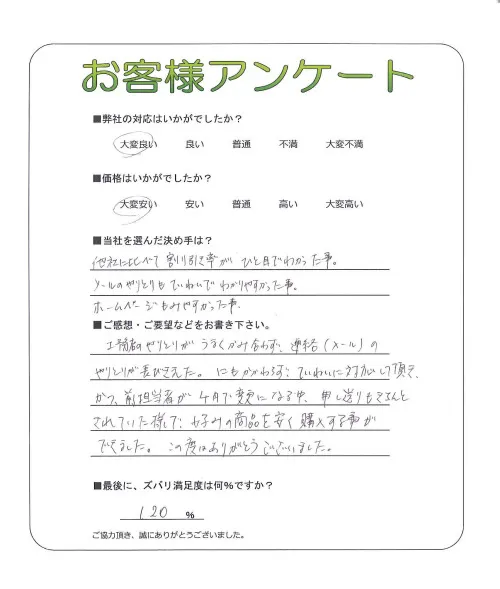 お客様アンケート
■弊社の対応はいかがでしたか？
大変良い 良い 普通 不満 大変不満
■価格はいかがでしたか？
大変安い 安い 普通 高い 大変高い
■当社を選んだ決め手は？
他社に比べて割り引き率がひと目でわかった事。
メールのやりとりもていねいでわかりやすかった事。
ホームページもみやすかった事。
■ご感想・ご要望などをお書き下さい。
のやりとりがうまくかみ合わず、連絡(メール)の
やりとりが長びきました。にもかかわらず、ていねいに対応して頂き、
かつ、前担当者が4月で変更になる中、申し送りもきちんと
されていた様で、好みの商品を安く購入する事が
できました。この度はありがとうございました。
■最後に、ズバリ満足度は何％ですか？
120 ％
ご協力頂き、誠にありがとうございました。